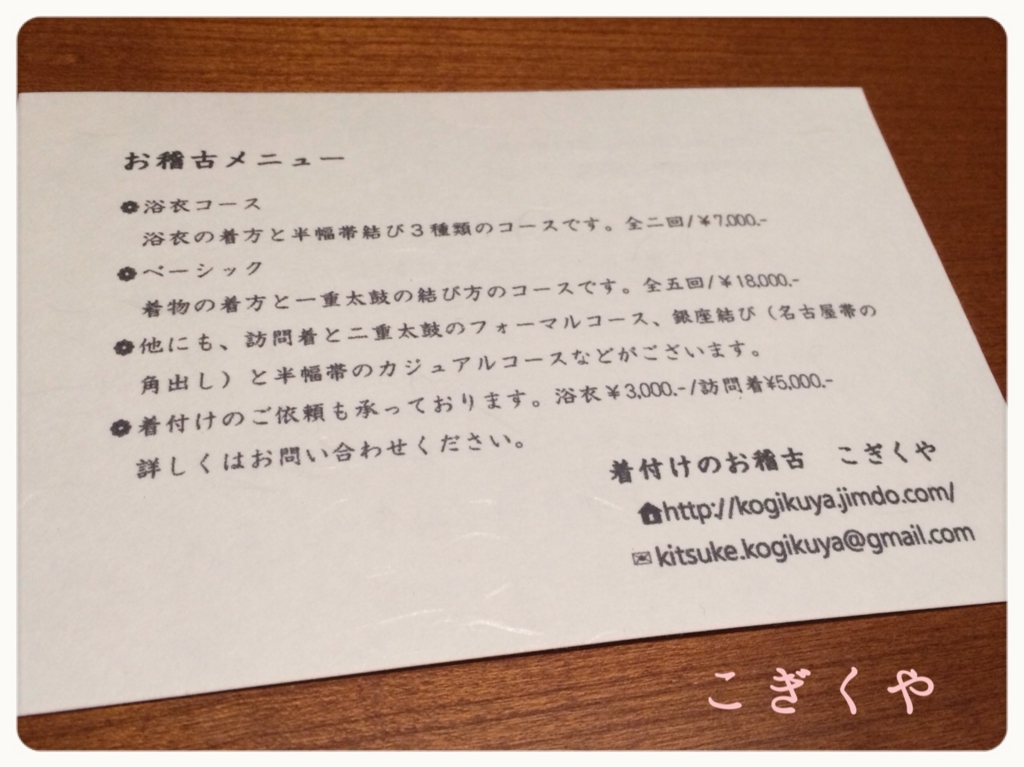 お稽古メニュー
❁浴衣コース
浴衣の着方と半幅帯結び３種類のコースです。全二回/￥7,000.-
❁ベーシック
着物の着方と一重太鼓の結び方のコースです。全五回/￥18,000.-
❁他にも、訪問着と二重太鼓のフォーマルコース、銀座結び（名古屋帯の
角出し）と半幅帯のカジュアルコースなどがございます。
❁着付けのご依頼も承っております。浴衣￥3,000.-/訪問着¥5,000.-
詳しくはお問い合わせください。
着付けのお稽古　こぎくや
http://kogikuya.jimdo.com/
✉kitsuke.kogikuya@gmail.com
こぎくや